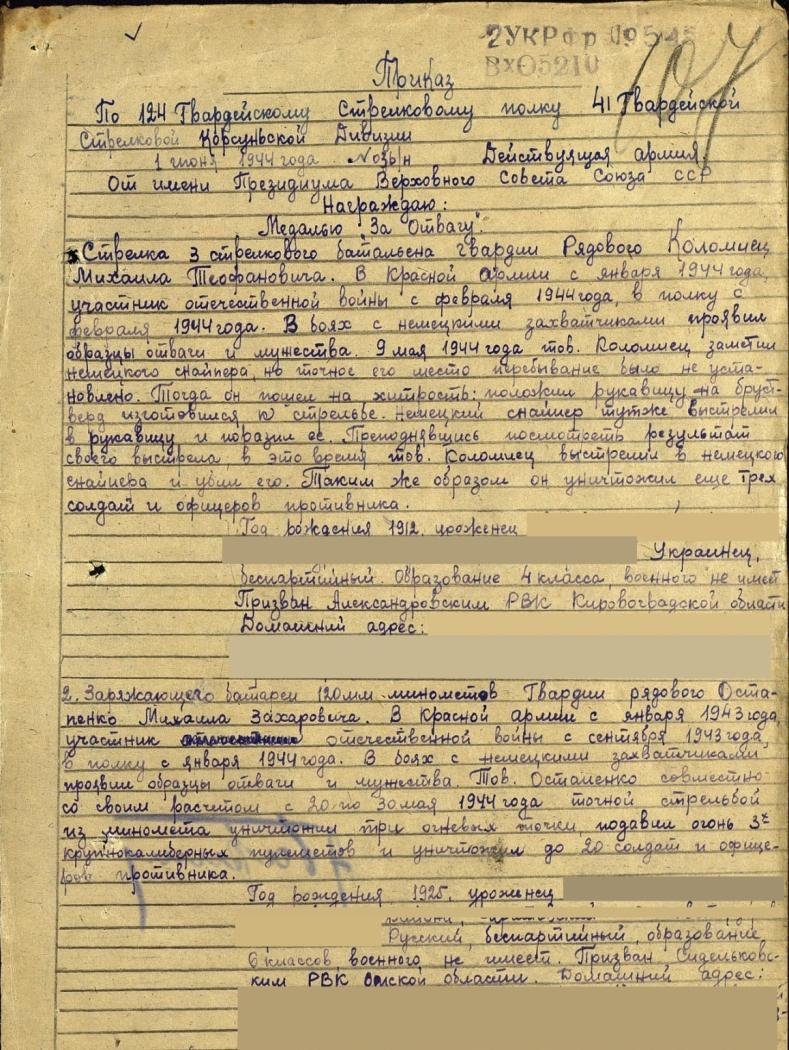 2УКР фр
Вх05210
107
Приказ
По 124 Гвардейскому Стрелковому полку 41 Гвардейской
Стрелковой Корсуньской Дивизии
1 июня 1944 года №03/н Действующая армия.
От имени Президиума Верховного Совета Союза ССР
Награждаю:
Медалью "За Отвагу".
Стрелка 3 стрелкового батальена гвардии Рядового Коломиец
Михаила Теофановича. В Красной армии с января 1944 года,
участник отечественной войны с февраля 1944 года, в полку с
февраля 1944 года. В боях с немецкими захватчиками проявил
образцы отваги и мужества. 9 мая 1944 года тов. Коломиец заметил
немецкого снайпера, но точное его место перебывание было не уста-
новлено. Тогда он пошел на хитрость: положил рукавицу на бруст-
верд изготовился к стрельбе. Немецкий снайпер тутже выстрелил
в рукавицу и поразил ее. Преподнявшись посмотреть результат
своего выстрела, в это время тов. Коломиец выстрелил в немецкого
снайпера и убил его. Таким же образом он уничтожил еще трех
солдат и офицеров противника.
Год рождения 1912, уроженец
Украинец,
беспартийный. Образование 4 класса, военного не имеет
Призван Александровским РВК Кировоградской области
Домашний адрес:
2. Заряжающего батареи 120мм минометов Гвардии рядового Оста-
пенко Михаила Захаровича. В Красной армии с января 1943 года,
участник отечественной войны с сентября 1943 года,
в полку с января 1944 года. В боях с немецкими захватчиками
проявил образцы отваги и мужества. Тов. Остапенко совместно
со своим расчетом с 20 по 30 мая 1944 года точной стрельбой
из миномета уничтожил три огневых точки, подавил огонь 3х
крупнокалиберных пулеметов и уничтожил до 20 солдат и офице-
ров противника.
Год рождения 1925, уроженец
Русский, беспартийный, образование
6 классов, военного не имеет. Призван Сидельковс-
ким РВК Омской области. Домашний адрес: